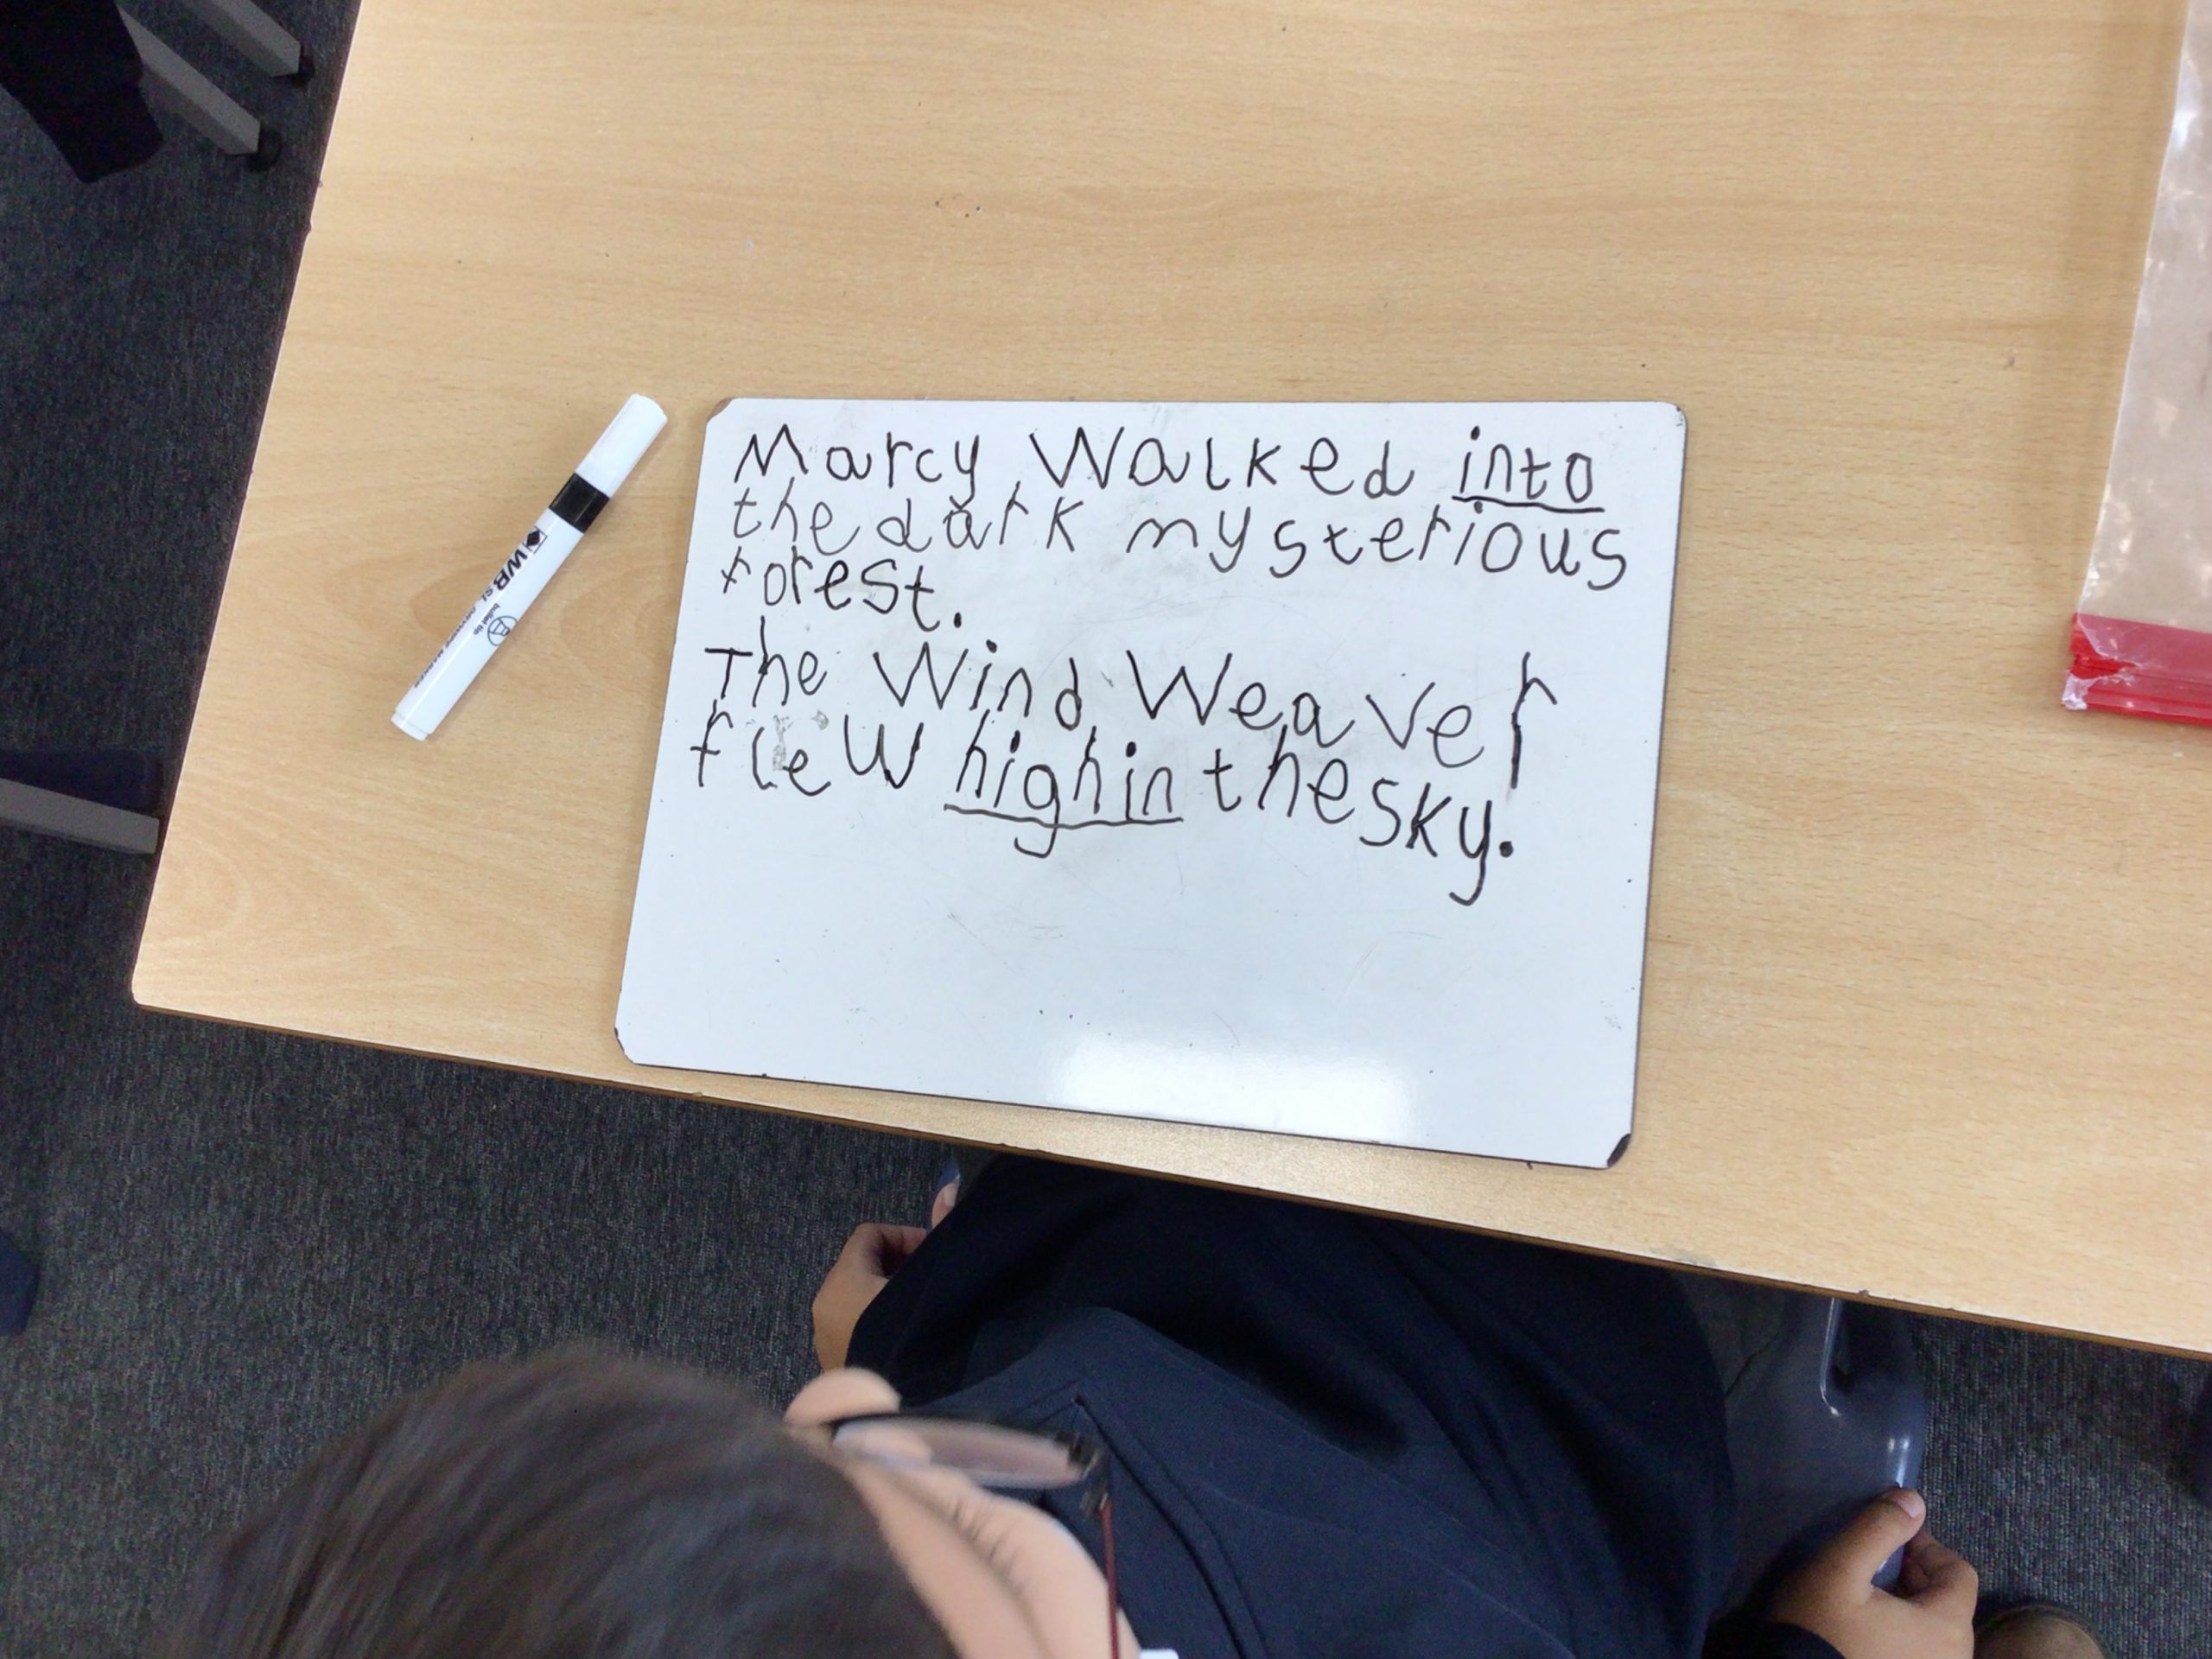 Marcy Walked into
the dark mysterious
forest.
The Wind Weaver
flew high in the sky.
WB
bullet tip